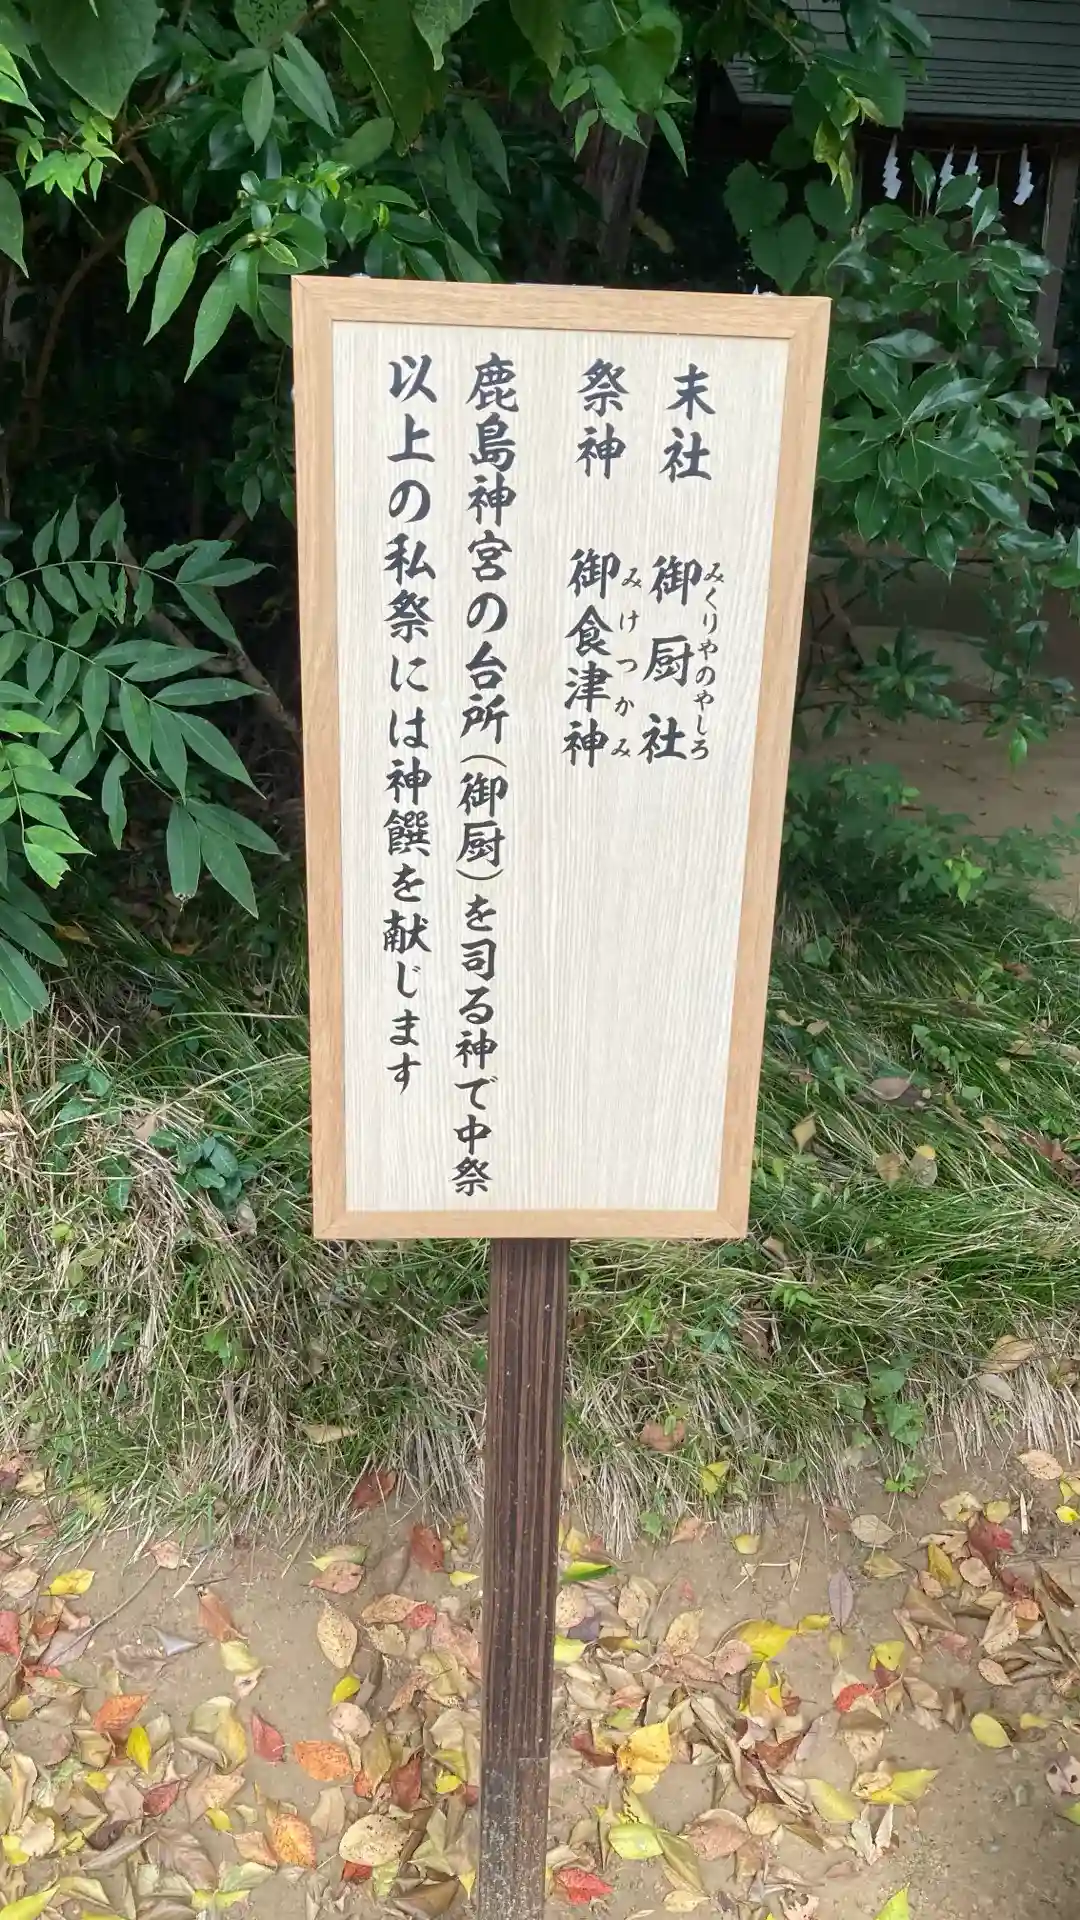 末社 御厨社
みくりやのやしろ
祭神 御食津神
みけつかみ
鹿島神宮の台所(御厨)を司る神で中祭
以上の私祭には神饌を献じます